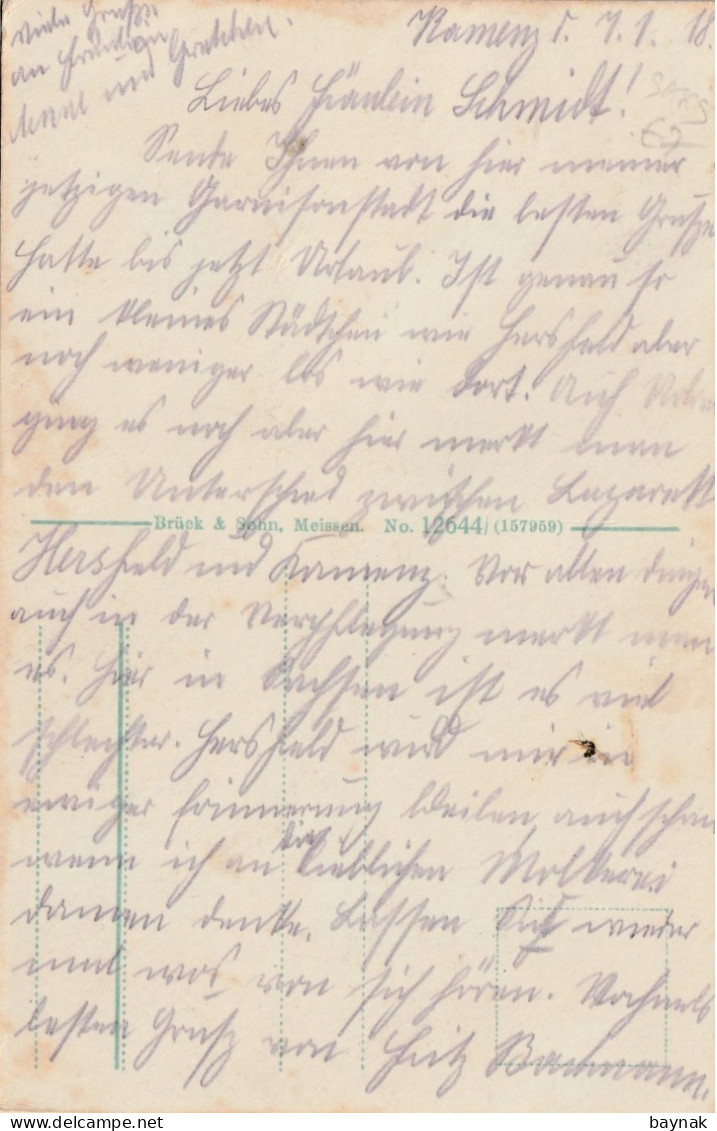 Kamenz d. 7.1.18.
Viele Grüße
an Fräulein
und Gretchen.
Liebes Fräulein Schmidt!
Sende Ihnen von hier meiner
jetzigen Garnisonstadt die besten Grüsse
Hatte bis jetzt Urlaub. Ist genau so
ein kleines Städtchen wie Hersfeld aber
noch weniger los wie dort. Auf
ging es noch aber hier merkt man
den Unterschied zwischen Lazarett
Brück & Sohn, Meissen. No. 12644/(157959)
Hersfeld und Kamenz. Vor allen dingen
auch in der Verpflegung merkt man
es. Hier in Sachsen ist es viel
schlechter. Hersfeld wird mir in
ewiger Erinnerung bleiben, auch schon
wenn ich an die lieblichen Molkerei
damen denke. Lassen Sie wieder
mal was von sich hören. Nochmals
besten Grusz von Fritz Baumann.
baynak